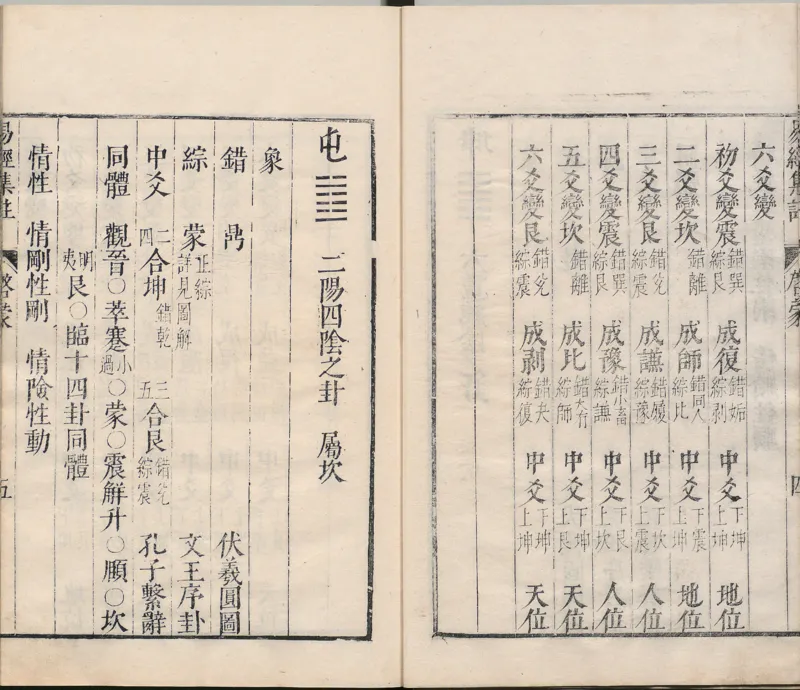 易經集註 啓蒙 四
六爻變
初爻變震 錯巽綜艮 成復 錯姤綜剥 中爻 下坤上坤 地位
二爻變坎 錯離 成師 錯同人綜比 中爻 下震上坤 地位
三爻變艮 錯兊綜震 成謙 錯履綜豫 中爻 下坎上震 人位
四爻變震 錯巽綜艮 成豫 錯小畜綜謙 中爻 下艮上坎 人位
五爻變坎 錯離 成比 錯大有綜師 中爻 下坤上艮 天位
六爻變艮 錯兊綜震 成剥 錯夬綜復 中爻 下坤上坤 天位
屯 ䷂ 二陽四陰之卦 屬坎
象
錯 鼎 伏羲圓圖
綜 蒙 正綜詳見圖解 文王序卦
中爻 二四合坤 錯乾 三五合艮 錯兊綜震 孔子繫辭
同體 觀晉○萃蹇小過○蒙○震解升○頤○坎
明夷艮○臨十四卦同體
情性 情剛性剛 情險性動
易經集註 啓蒙 五